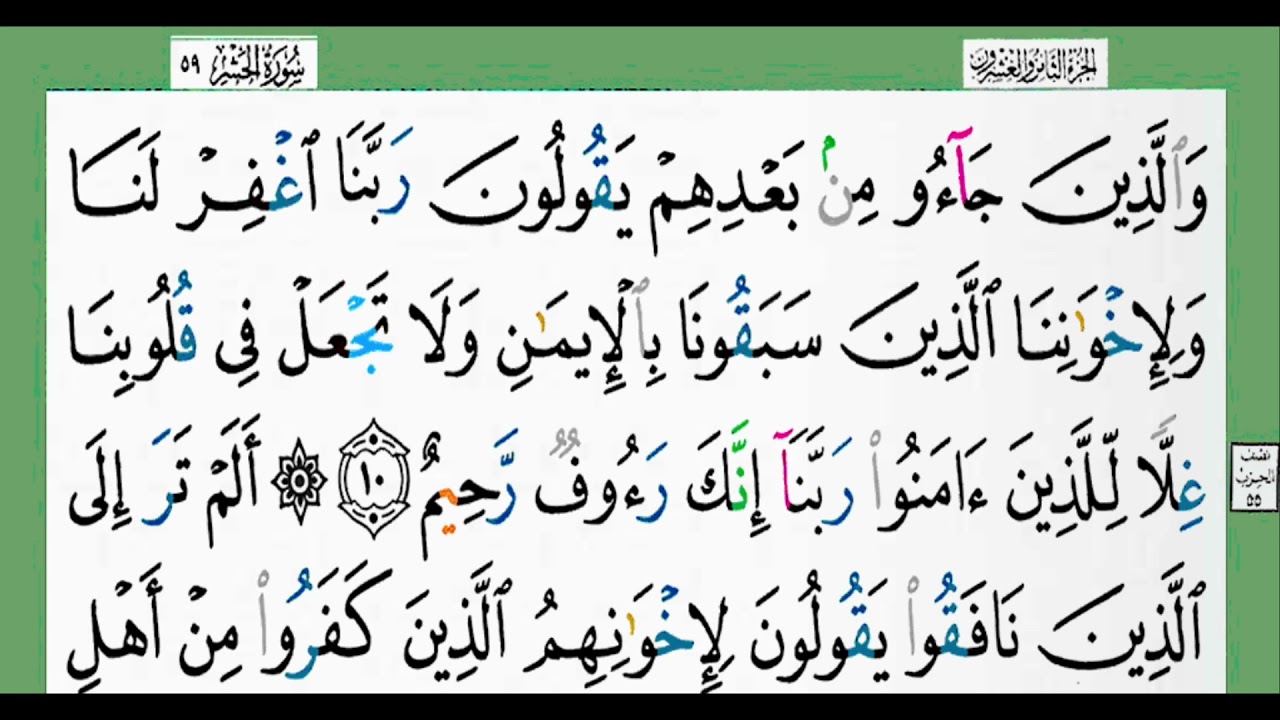 الجزء الثامن والعشرون
سورة الحشر ٥٩
وَٱلَّذِينَ جَآءُو مِنۢ بَعْدِهِمْ يَقُولُونَ رَبَّنَا ٱغْفِرْ لَنَا
وَلِإِخْوَٰنِنَا ٱلَّذِينَ سَبَقُونَا بِٱلْإِيمَٰنِ وَلَا تَجْعَلْ فِى قُلُوبِنَا
غِلًّا لِّلَّذِينَ ءَامَنُوا۟ رَبَّنَآ إِنَّكَ رَءُوفٌ رَّحِيمٌ ١٠ ۞ أَلَمْ تَرَ إِلَى
ٱلَّذِينَ نَافَقُوا۟ يَقُولُونَ لِإِخْوَٰنِهِمُ ٱلَّذِينَ كَفَرُوا۟ مِنْ أَهْلِ
نصف
الحزب
٥٥